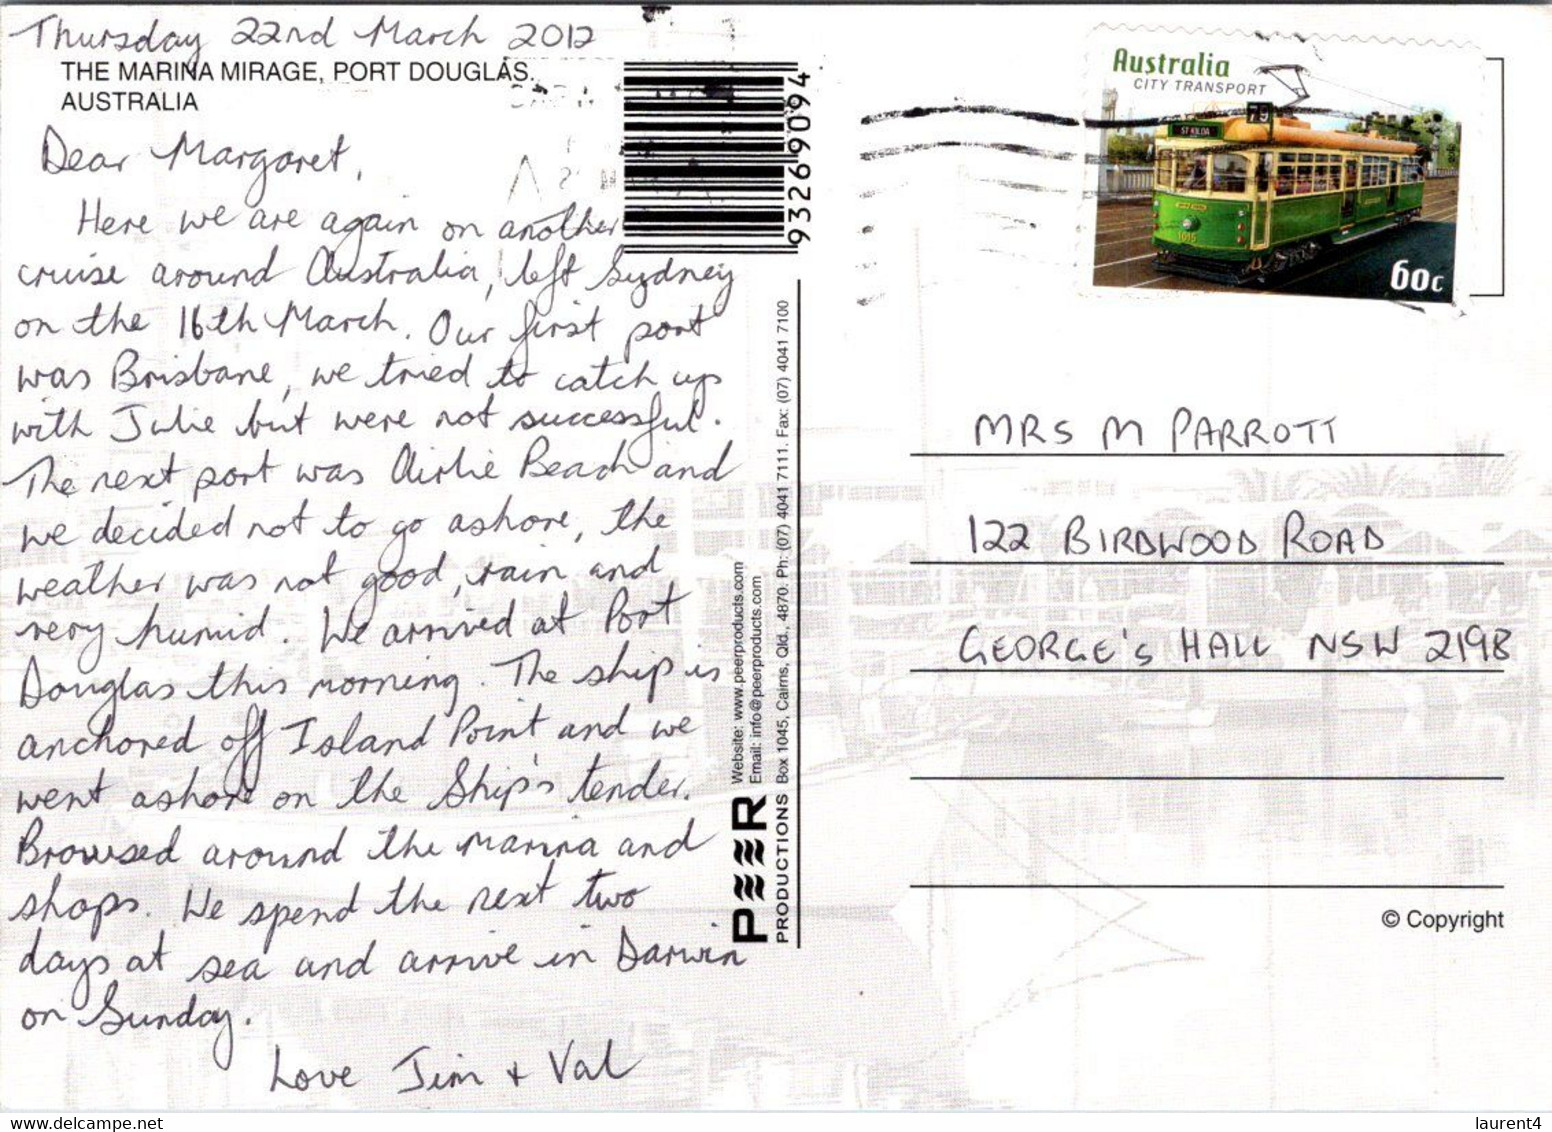 Thursday 22nd March 2012
THE MARINA MIRAGE, PORT DOUGLAS.
AUSTRALIA
Dear Margaret,
Here we are again on another
cruise around Australia, left Sydney
on the 16th March. Our first port
was Brisbane, we tried to catch up
with Julie but were not successful.
The next port was Airlie Beach and
we decided not to go ashore, the
weather was not good, rain and
very humid. We arrived at Port
Douglas this morning. The ship is
anchored off Island Point and we
went ashore on the Ship's tender.
Browsed around the marina and
shops. We spend the next two
days at sea and arrive in Darwin
on Sunday.
Love Jim + Val
93269094
Website: www.peerproducts.com
Email: info@peerproducts.com
PEER
PRODUCTIONS Box 1045, Cairns, Qld., 4870. Ph: (07) 4041 7111. Fax: (07) 4041 7100
Australia
CITY TRANSPORT
79
ST KILDA
1015
60c
MRS M PARROTT
122 BIRDWOOD ROAD
GEORGE'S HALL NSW 2198
© Copyright
laurent4